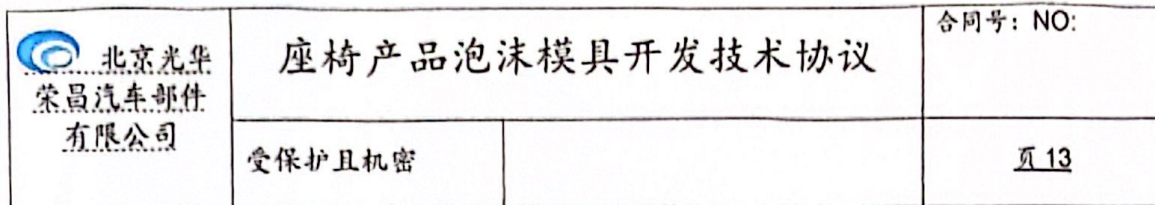 北京光华
荣昌汽车部件
有限公司
座椅产品泡沫模具开发技术协议
合同号：NO:
受保护且机密
页 13